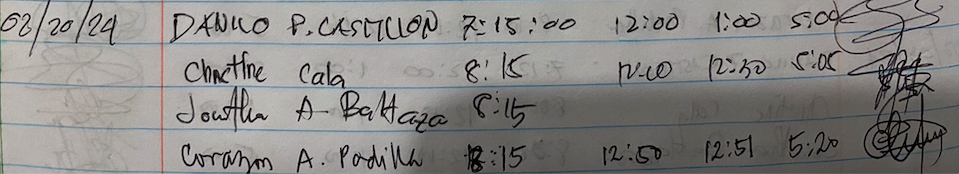 02/20/24 DANILO P. CASTILLON 7:15:00 12:00 1:00 5:00
Cala 8:15 12:00 12:30 5:05
A. Baltaza 8:15
Corazon A. Padilla 8:15 12:50 12:51 5:20